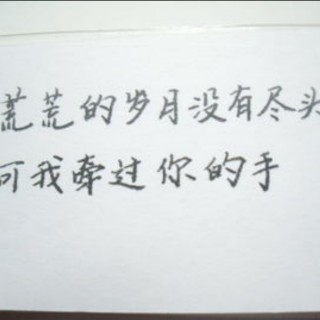 荒荒的岁月没有尽头
可我牵过你的手